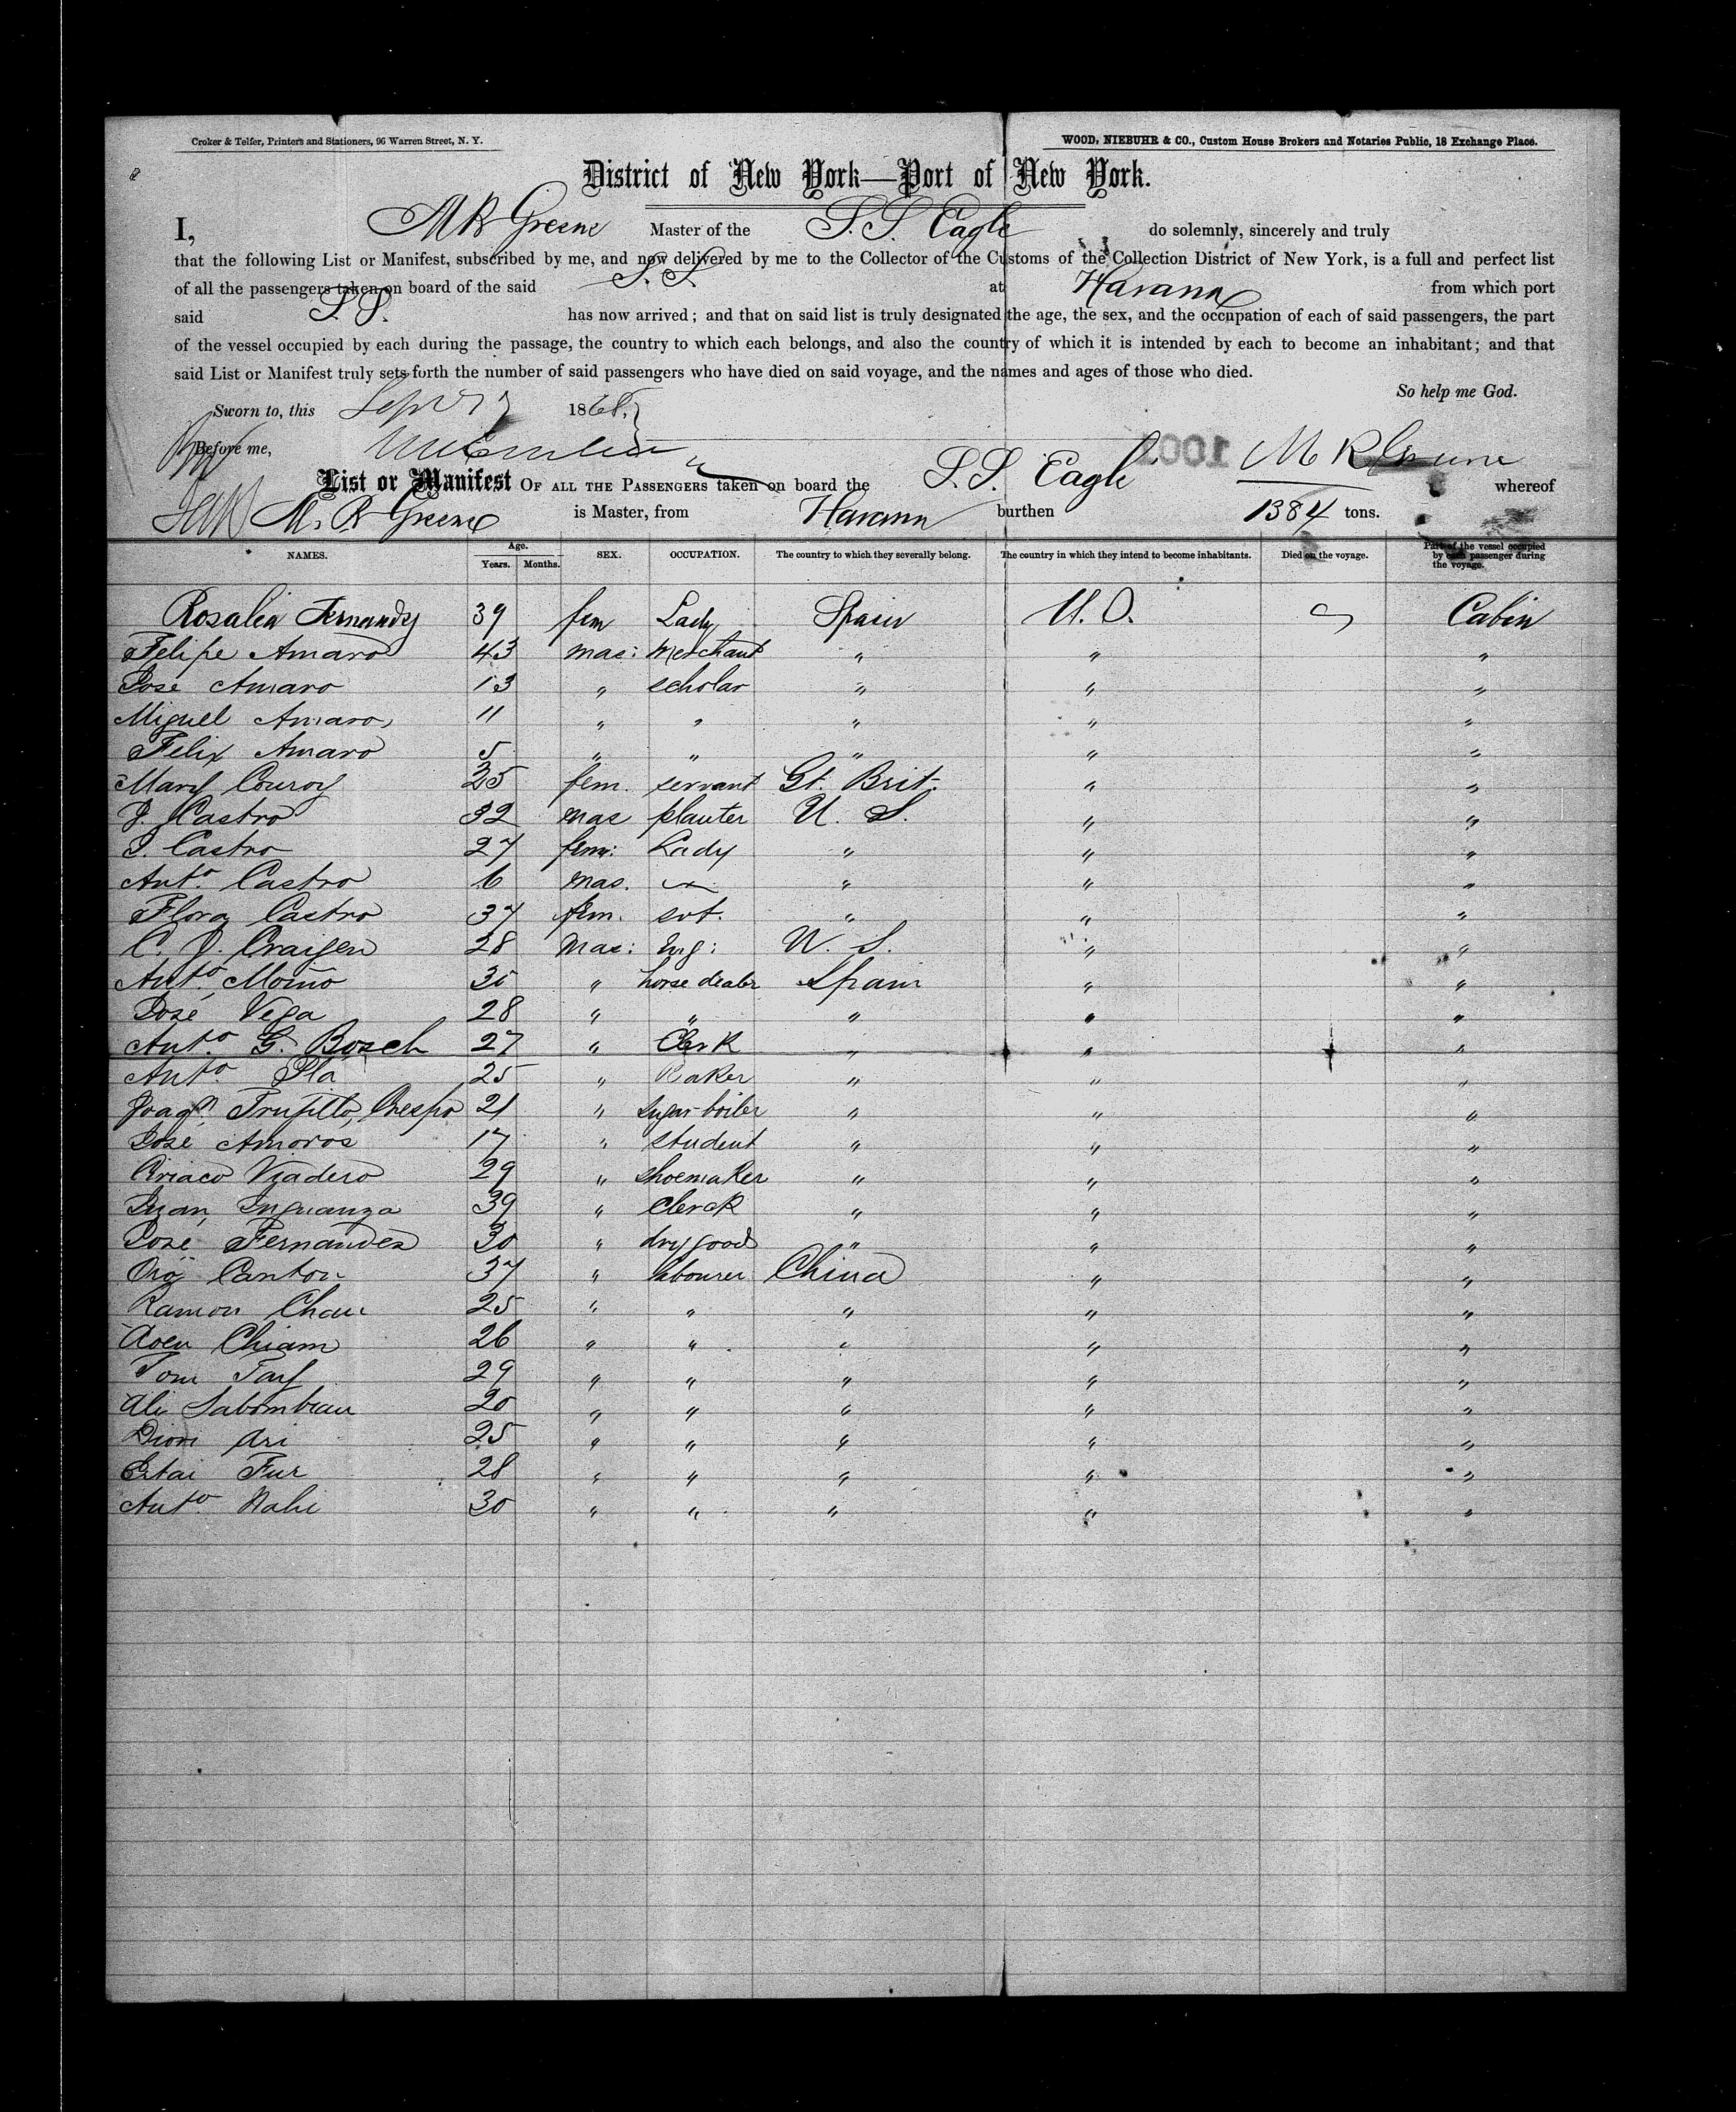 Croker & Telfer, Printers and Stationers, 96 Warren Street, N. Y. WOOD, NIEBUHR & CO., Custom House Brokers and Notaries Public, 18 Exchange Place.
District of New York—Port of New York.
I, M R Greene Master of the S. S. Eagle do solemnly, sincerely and truly
that the following List or Manifest, subscribed by me, and now delivered by me to the Collector of the Customs of the Collection District of New York, is a full and perfect list
of all the passengers taken on board of the said S. S. at Havana from which port
said S. S. has now arrived; and that on said list is truly designated the age, the sex, and the occupation of each of said passengers, the part
of the vessel occupied by each during the passage, the country to which each belongs, and also the country of which it is intended by each to become an inhabitant; and that
said List or Manifest truly sets forth the number of said passengers who have died on said voyage, and the names and ages of those who died.
So help me God.
Sworn to, this Sept 1868.
Before me, 1001 M R Greene
List or Manifest OF ALL THE PASSENGERS taken on board the S. S. Eagle whereof
M. R Greene is Master, from Havana burthen 1384 tons.
NAMES. Age. Years. Months. SEX. OCCUPATION. The country to which they severally belong. The country in which they intend to become inhabitants. Died on the voyage. Part of the vessel occupied by each passenger during the voyage.
Rosalia Fernandz 39 fem Lady Spain U. S. Cabin
Felipe Amaro 43 mas: merchant " " "
José Amaro 13 " scholar " " "
Miguel Amaro 11 " " " " "
Felix Amaro 5 " " " " "
Mary Conroy 25 fem. servant Gt. Brit. " "
J. Castro 32 mas planter U. S. " "
J. Castro 27 fem: Lady " " "
Anto. Castro 6 mas. " " "
Flora Castro 37 fem. svt. " " "
C. J. Craigen 28 mas: Eng: U. S. " "
Anto. Moino 30 " horse dealer Spain " "
José Vega 28 " " " " "
Anto. G. Bosch 27 " Clerk " " "
Anto. Pla 25 " Baker " " "
Joaqn. Trujillo, Crespo 21 " sugar-boiler " " "
José Amoros 17 " student " " "
Ciriaco Viadero 29 " shoemaker " " "
Juan Inguanza 39 " Clerck " " "
José Fernandez 30 " dry goods " " "
Canton 37 " labourer China " "
Ramon Chan 25 " " " " "
Aoen Chiam 26 " " " " "
Tom Tay 29 " " " " "
Ali Sabombian 20 " " " " "
Dion Ari 25 " " " " "
Estai Fur 28 " " " " "
Anto. Nahi 30 " " " " "